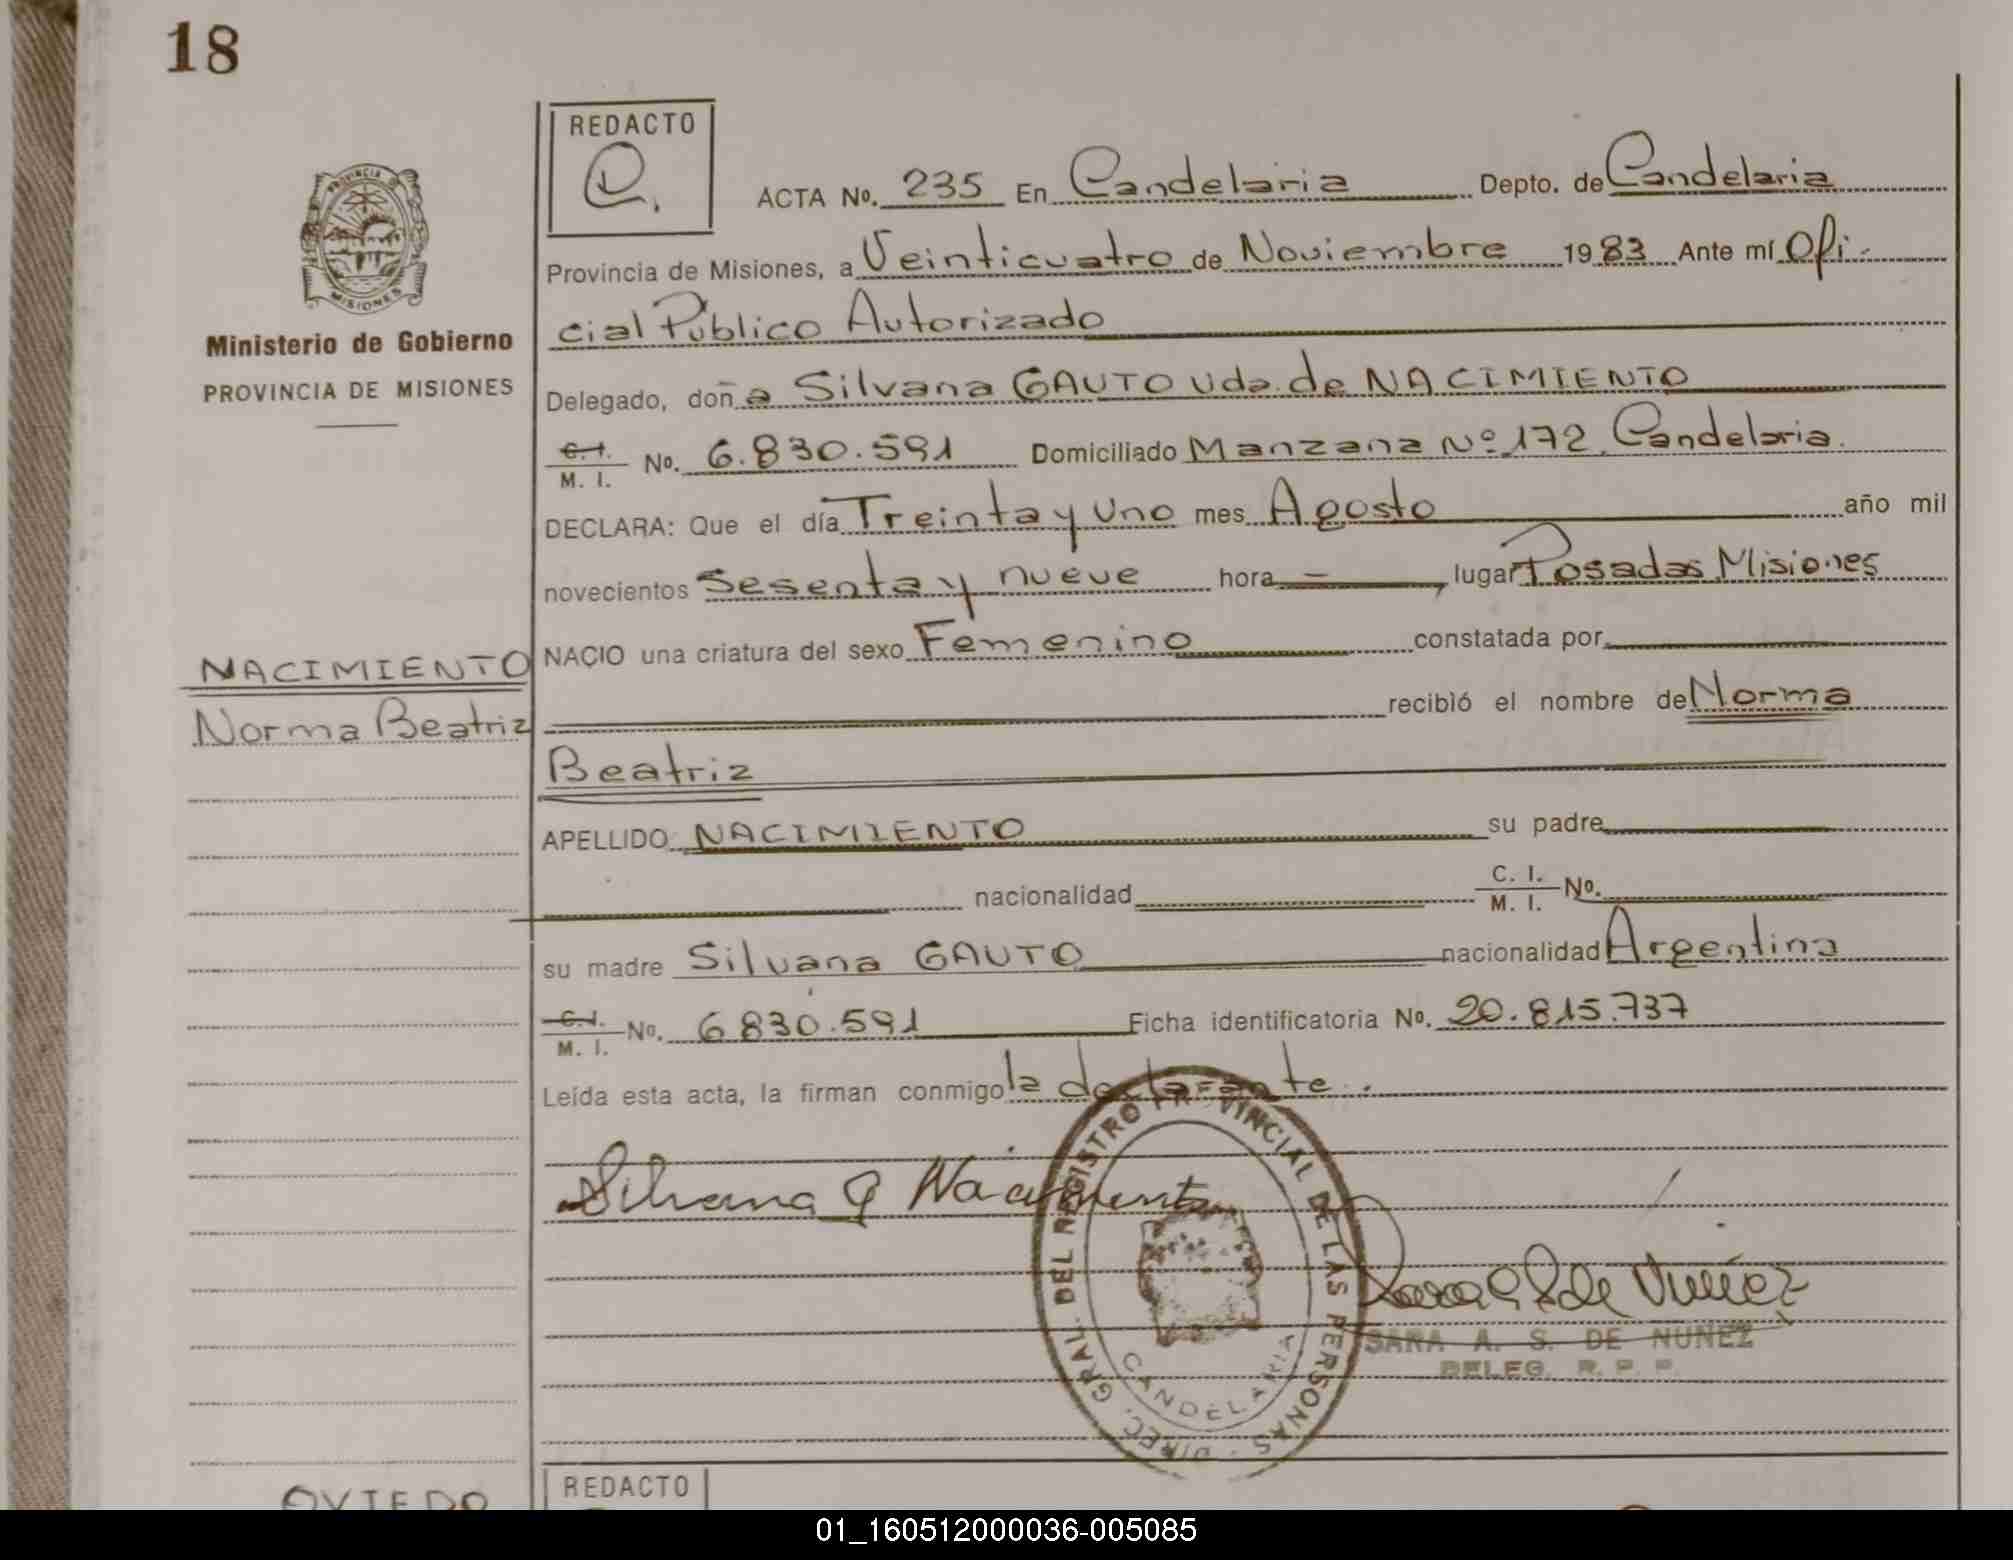 18
REDACTO
C.
PROVINCIA DE
MISIONES
Ministerio de Gobierno
PROVINCIA DE MISIONES
ACTA No. 235 En Candelaria Depto. de Candelaria
Provincia de Misiones, a Veinticuatro de Noviembre 1983 Ante mí Ofi-
cial Público Autorizado
Delegado, doña Silvana GAUTO Vda. de NACIMIENTO
C. I. / M. I. No. 6.830.591 Domiciliado Manzana Nº 172, Candelaria.
DECLARA: Que el día Treinta y Uno mes Agosto año mil
novecientos Sesenta y nueve hora — , lugar Posadas, Misiones
NACIO una criatura del sexo Femenino constatada por
NACIMIENTO
Norma Beatriz
recibió el nombre de Norma
Beatriz
APELLIDO NACIMIENTO su padre
nacionalidad C. I. / M. I. No.
su madre Silvana GAUTO nacionalidad Argentina
C. I. / M. I. No. 6.830.591 Ficha identificatoria No. 20.815.737
Leída esta acta, la firman conmigo la declarante.
Silvana G Nacimiento
DIREC. GRAL. DEL REGISTRO PROVINCIAL DE LAS PERSONAS -
CANDELARIA
Sara A S de Núñez
SARA A. S. DE NUÑEZ
DELEG. R. P. P.
OVIEDO
REDACTO
01_160512000036-005085